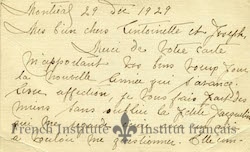 Montréal 29 Dec 1929
Mes bien chers Antoinette et Joseph,
Merci de votre carte
m'apportant vos bons vœux pour
la nouvelle année qui s'avance.
affection je vous fais part des
miens, sans oublier la petite
qui me
French Institute Institut français
vouloir me questionner. Elle